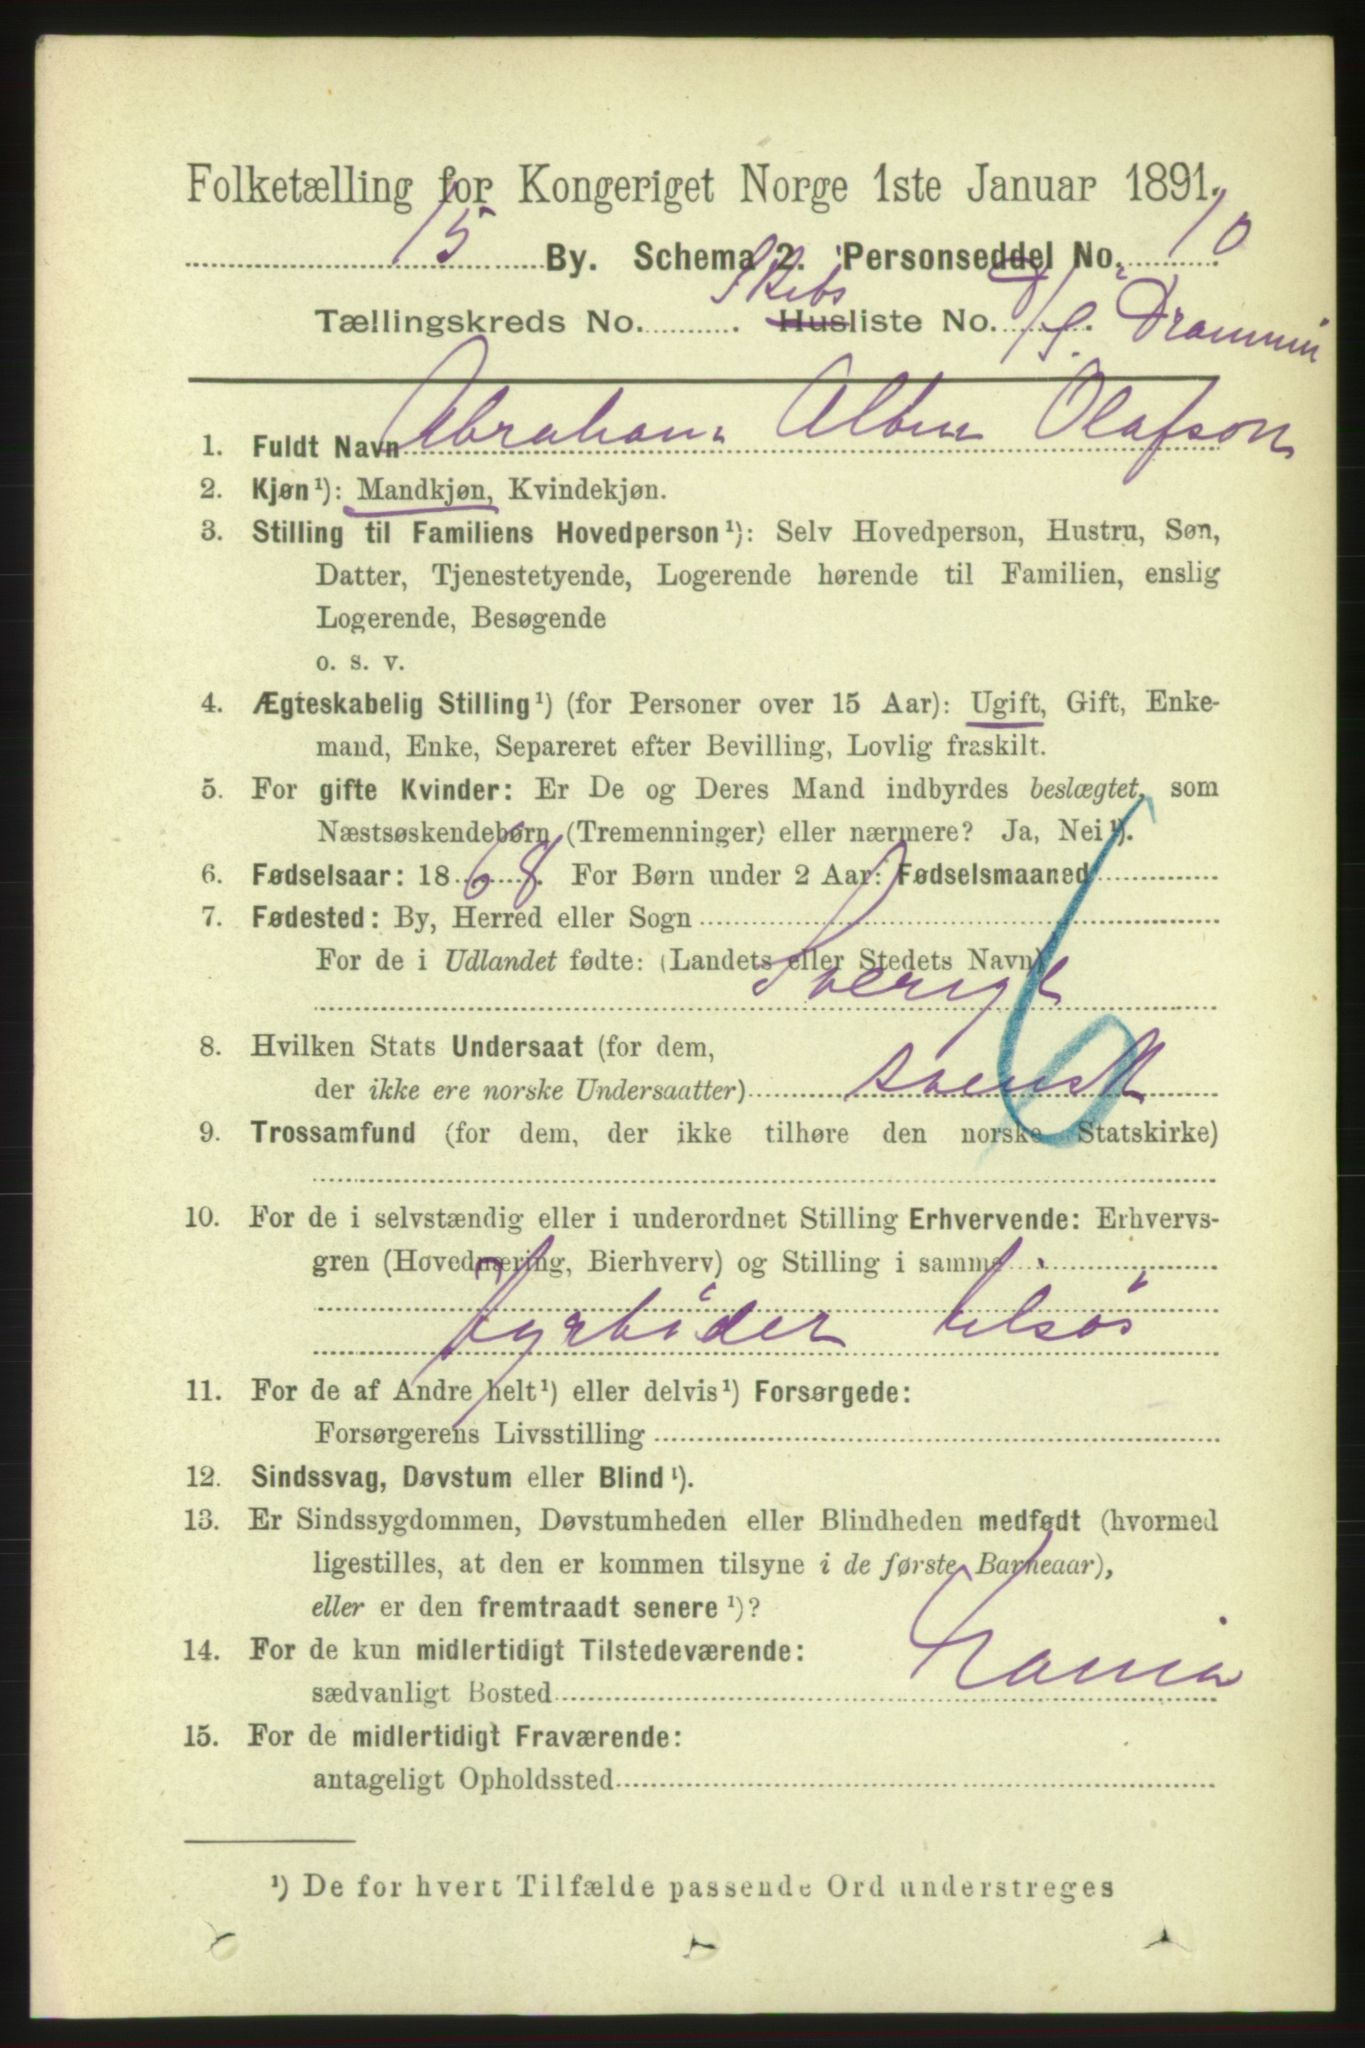 Folketælling for Kongeriget Norge 1ste Januar 1891.
15 By. Schema 2. Personseddel No. 10
Tællingskreds No. Skibs Husliste No. D/S. Drammen
1. Fuldt Navn Abraham Olafson
2. Kjøn¹): Mandkjøn, Kvindekjøn.
3. Stilling til Familiens Hovedperson¹): Selv Hovedperson, Hustru, Søn,
Datter, Tjenestetyende, Logerende hørende til Familien, enslig
Logerende, Besøgende
o. s. v.
4. Ægteskabelig Stilling¹) (for Personer over 15 Aar): Ugift, Gift, Enke-
mand, Enke, Separeret efter Bevilling, Lovlig fraskilt.
5. For gifte Kvinder: Er De og Deres Mand indbyrdes beslægtet, som
Næstsøskendebørn (Tremenninger) eller nærmere? Ja, Nei¹).
6. Fødselsaar: 1868. For Børn under 2 Aar: Fødselsmaaned
7. Fødested: By, Herred eller Sogn
For de i Udlandet fødte: (Landets eller Stedets Navn)
Sverige
8. Hvilken Stats Undersaat (for dem,
der ikke ere norske Undersaatter) svensk
6
9. Trossamfund (for dem, der ikke tilhøre den norske Statskirke)
10. For de i selvstændig eller i underordnet Stilling Erhvervende: Erhvervs-
gren (Hovednæring, Bierhverv) og Stilling i samme
Fyrbøder tilsøs
11. For de af Andre helt¹) eller delvis¹) Forsørgede:
Forsørgerens Livsstilling
12. Sindssvag, Døvstum eller Blind¹).
13. Er Sindssygdommen, Døvstumheden eller Blindheden medfødt (hvormed
ligestilles, at den er kommen tilsyne i de første Barneaar),
eller er den fremtraadt senere¹)?
14. For de kun midlertidigt Tilstedeværende:
sædvanligt Bosted
15. For de midlertidigt Fraværende:
antageligt Opholdssted
¹) De for hvert Tilfælde passende Ord understreges